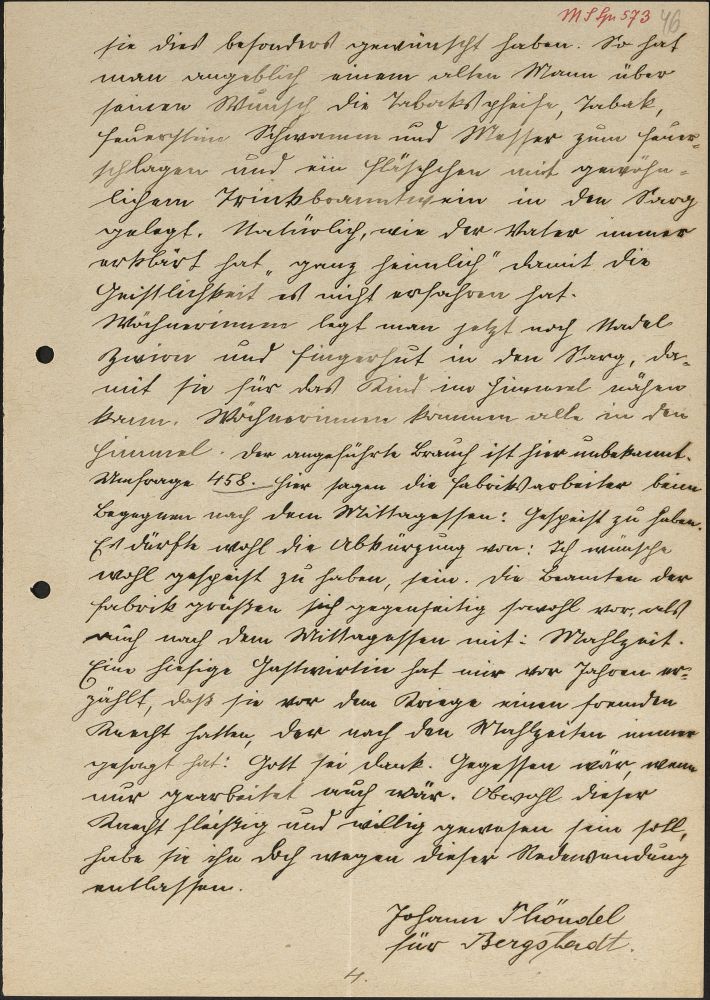 MS Sp. 573 46
sie dies besonders gewünscht haben. So hat
man angeblich einem alten Mann über
seinen Wunsch die Tabakspfeife, Tabak,
Feuerstein Schwamm und Messer zum Feuer-
schlagen und ein Fläschchen mit gewöhn-
lichem Trinkbranntwein in den Sarg
gelegt. Natürlich, wie der Vater immer
erklärt hat "ganz heimlich" damit die
Geistlichkeit es nicht erfahren hat.
Wöchnerinnen legt man jetzt noch Nadel
Zwirn und Fingerhut in den Sarg, da-
mit sie für das Kind im Himmel nähen
kann. Wöchnerinnen kommen alle in den
Himmel. Der angeführte Brauch ist hier unbekannt.
Umfrage 458. Hier sagen die Fabriksarbeiter beim
Begegnen nach dem Mittagessen: Gespeist zu haben.
Es dürfte wohl die Abkürzung von: Ich wünsche
wohl gespeist zu haben, sein. Die Beamten der
Fabrik grüßen sich gegenseitig sowohl vor, als
auch nach dem Mittagessen mit: Mahlzeit.
Eine hiesige Gastwirtin hat mir vor Jahren er-
zählt, daß sie vor dem Kriege einen fremden
Knecht hatten, der nach den Mahlzeiten immer
gesagt hat: Gott sei dank. Gegessen wär, wenn
nur gearbeitet auch wär. Obwohl dieser
Knecht fleißig und willig gewesen sein soll,
habe sie ihn doch wegen dieser Redewendung
entlassen.
Johann Thöndel
für Bergstadt.
4.